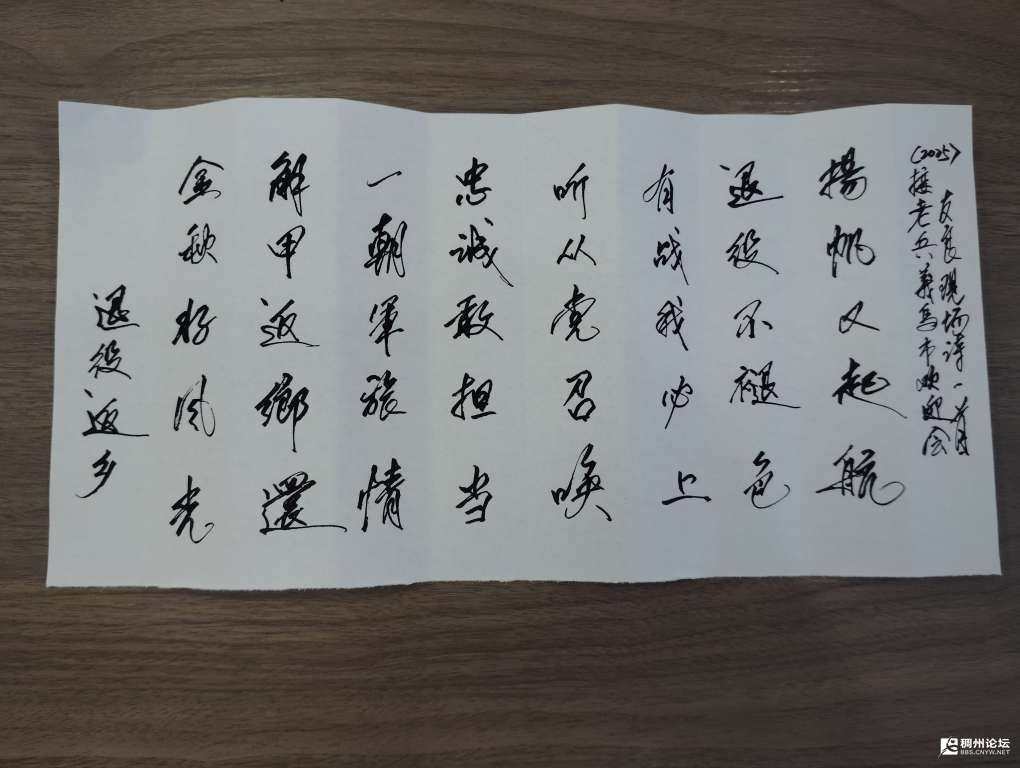 退役返乡
金秋好风光
解甲返鄉還
一朝軍旅情
忠诚敢担当
听从党召唤
有战我必上
退役不褪色
揚帆又起航
(2025)
接老兵義烏市欢迎会
友良现场诗一首
稠州论坛
BBS.CNYW.NET